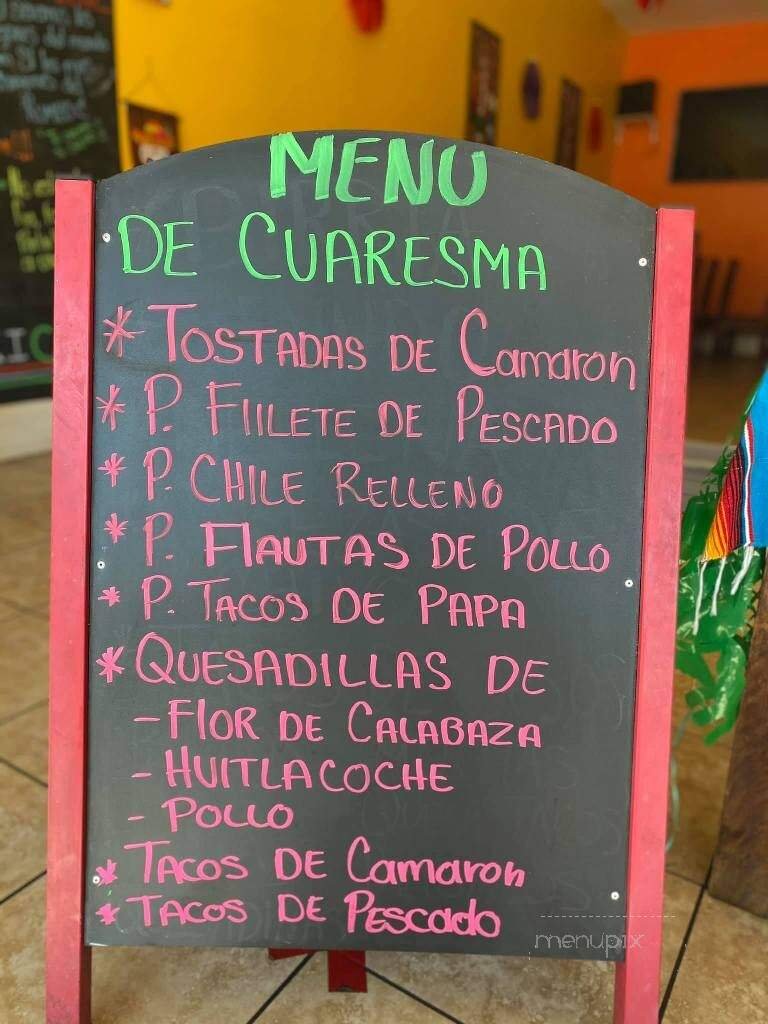 MENU
DE CUARESMA
* TOSTADAS DE Camaron
* P. FIILETE DE PESCADO
* P. CHILE RELLENO
* P. FlAUTAS DE POLLO
* P. TACOS DE PAPA
* QUESADILLAS DE
- FlOR DE CALABAZA
- HUITLACOCHE
- POLLO
* TACOS DE Camaron
* TACOS DE PEScado
menupix